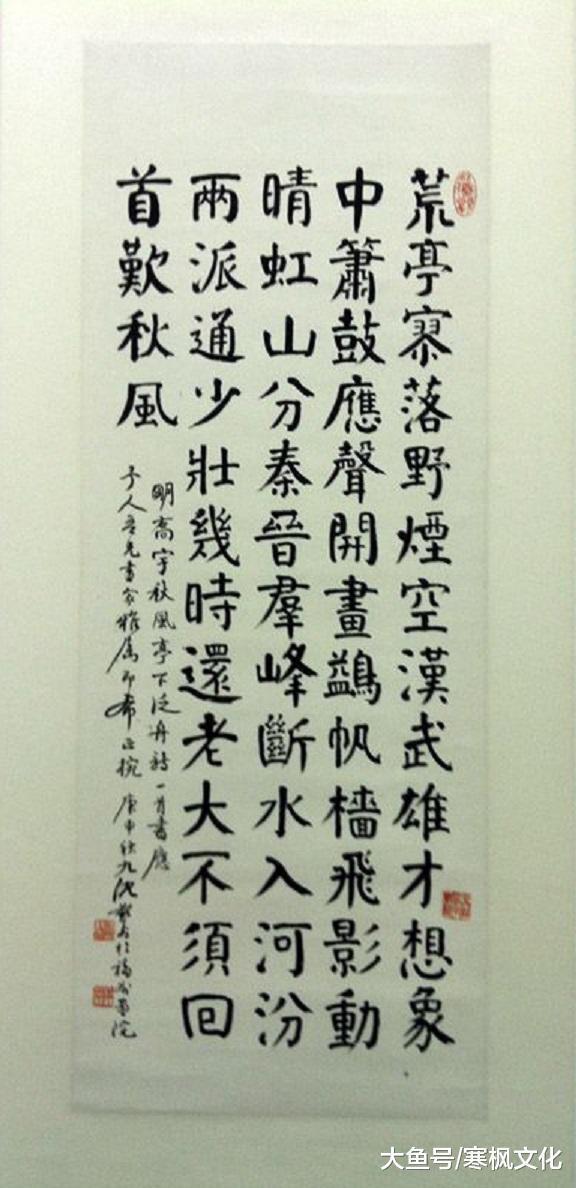 荒亭寥落野煙空漢武雄才想象
中簫鼓應聲開畫鷁帆檣飛影動
晴虹山分秦晉羣峰斷水入河汾
兩派通少壯幾時還老大不須回
首歎秋風
明高宇秋風亭下泛舟詩一首書應
予人吾兄書家雅屬即希正捥
庚申秋九沈
大鱼号/寒枫文化